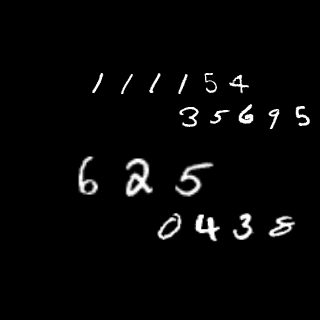 111154
35695
625
0438